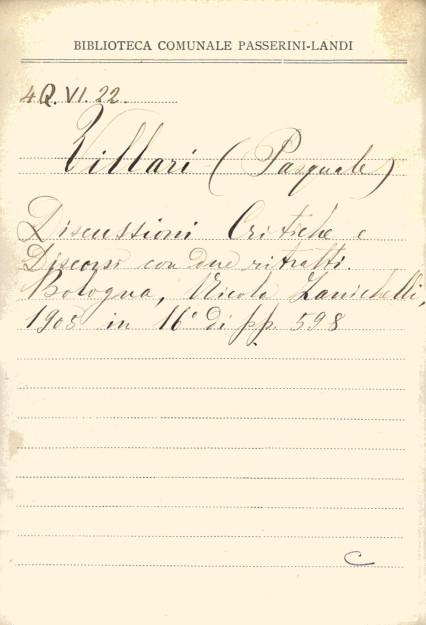 BIBLIOTECA COMUNALE PASSERINI-LANDI
4Q. VI. 22.
Villari (Pasquale)
Discussioni Critiche e
Discorsi con due ritratti.
Bologna, Nicola Zanichelli,
1905 in 16° di pp. 598
C